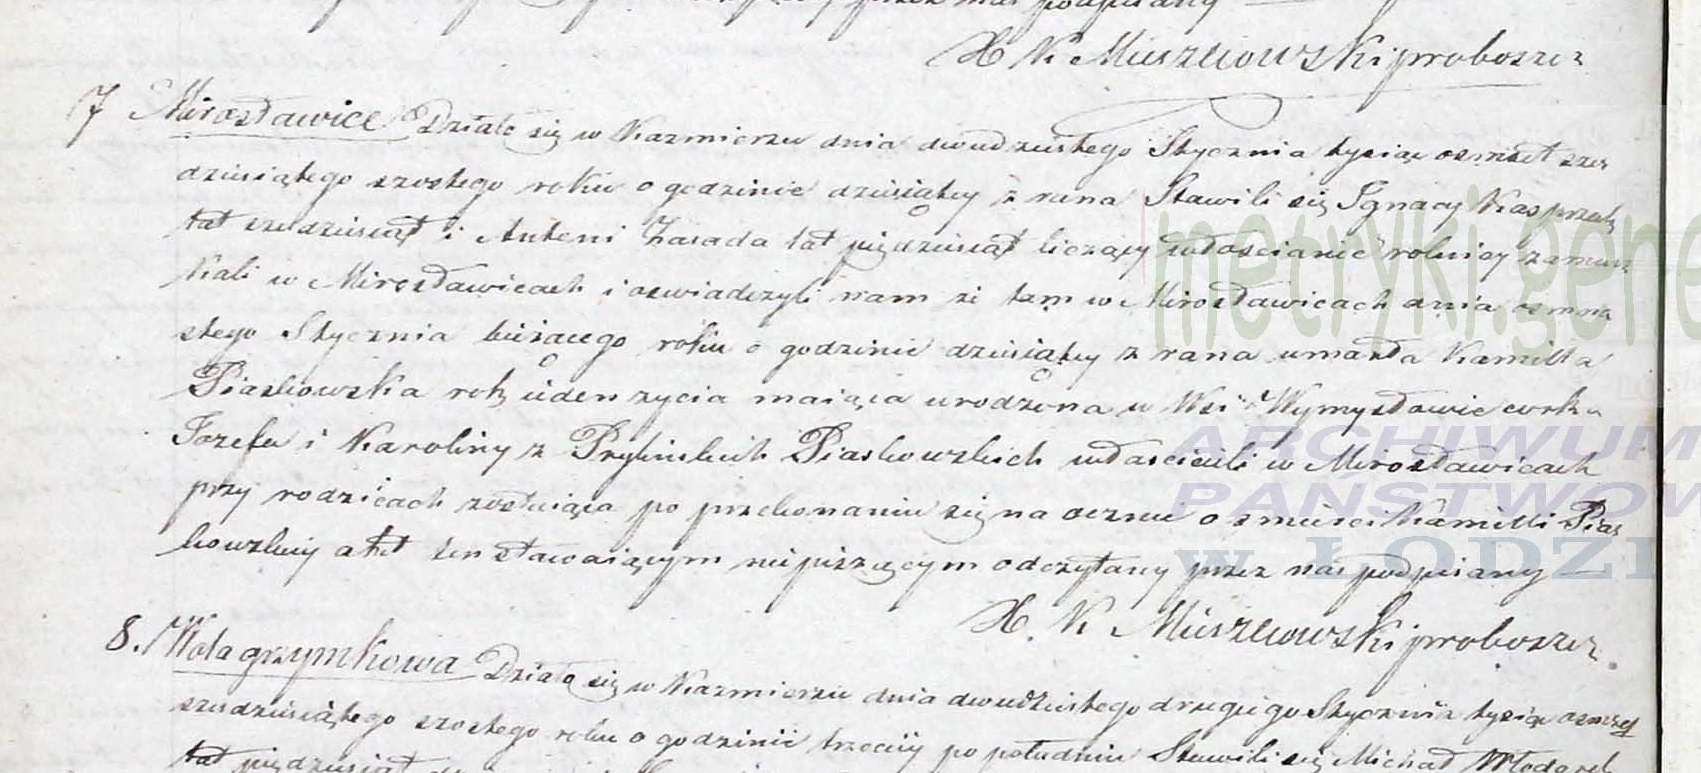 przez nas podpisany
X K Muszewowski proboszcz
7 Mirosławice Działo się w Kazmierzu dnia dwudziestego Stycznia tysiąc osmset szes
dziesiątego szostego roku o godzinie dziesiątey z rana Stawili się Ignacy Kasprzak
lat szedziesiąt i Antoni Zasada lat pięдziesiąt liczący włoscianie rolnicy zamiesz
kali w Mirosławicach i oswiadczyli nam że tam w Mirosławicach dnia osmna
stego Stycznia bieżącego roku o godzinie dziesiątey z rana umarła Kamilla
Piaskowska rok jeden zycia maiąca urodzona w Wsi Wymysławie corka
Jozefa i Karoliny z Piaskowskich włascicieli w Mirosławicach
przy rodzicach zostaiąca po przekonaniu się na ocznie o smierci Kamilli Pias
kowskiey akt ten stawaiącym niepiszącym odczytany przez nas podpisany —
X. K Muszewowski proboszcz
8. Wola grzymkowa Działo się w Kazmierzu dnia dwudziestego drugiego Stycznia tysiąc osmset
szesdziesiątego szostego roku o godzinie trzeciey po południu Stawili się Michał Włodarek
lat pięдziesiąt
metryki.gene
ARCHIWUM
PAŃSTWOW
w ŁODZI